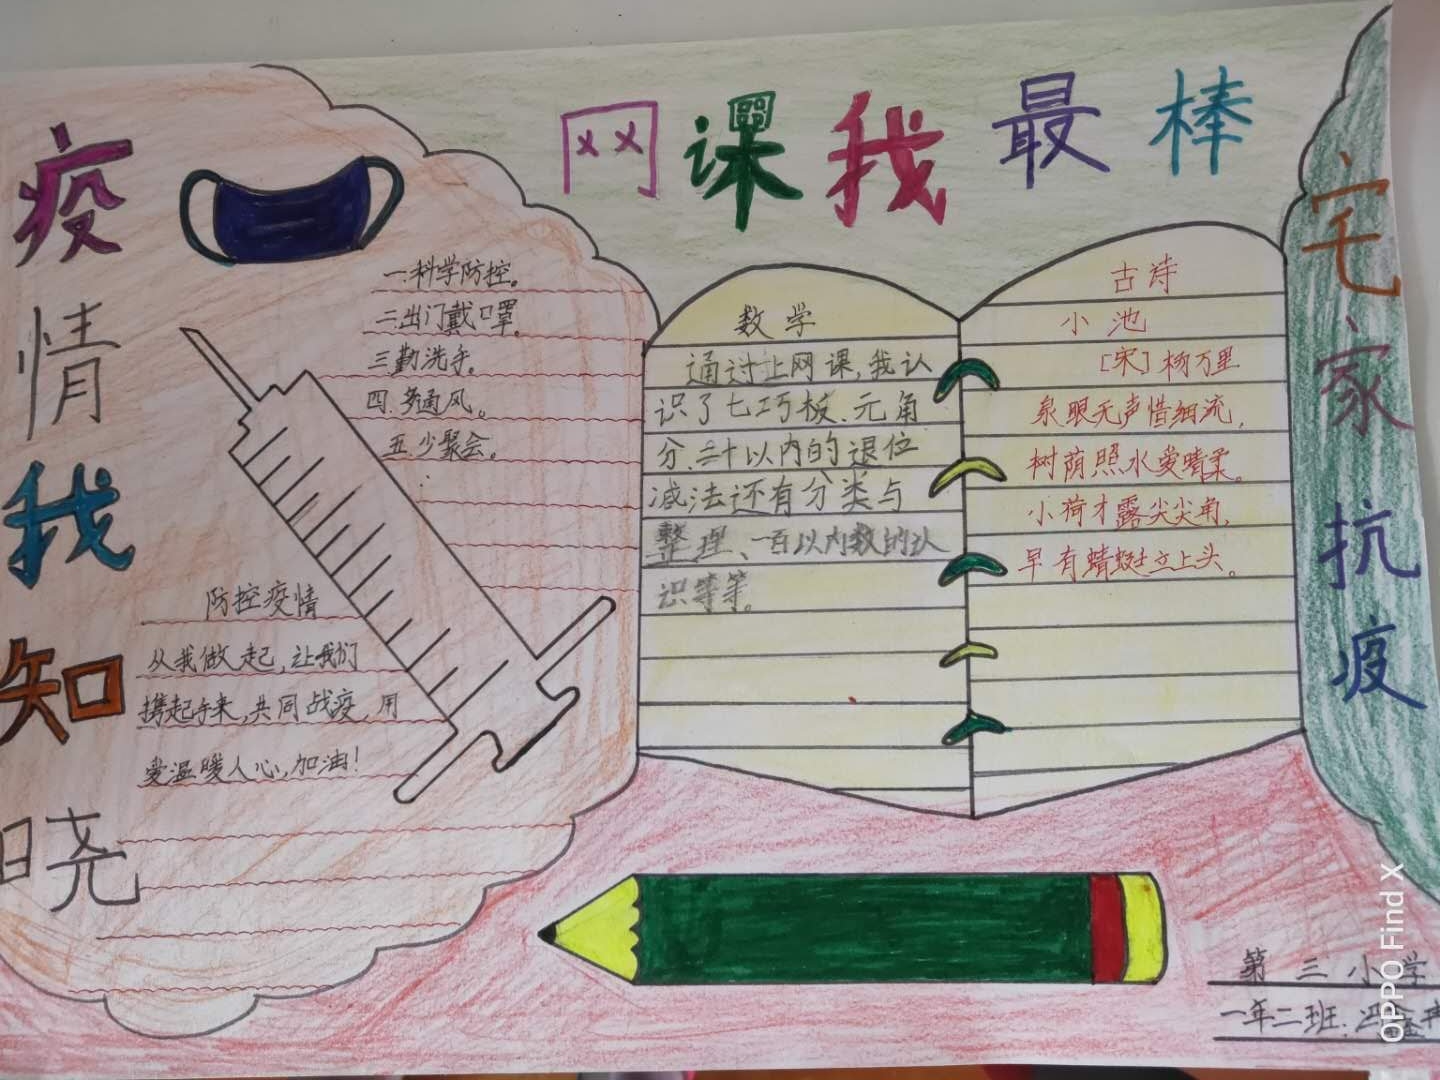 网课我最棒
疫情我知晓
一.科学防控。
二.出门戴口罩。
三.勤洗手。
四.多通风。
五.少聚会。
防控疫情
从我做起,让我们
携起手来,共同战疫,用
爱温暖人心,加油!
数学
通过上网课,我认
识了七巧板、元角
分、二十以内的退位
减法还有分类与
整理、一百以内数的认
识等等。
古诗
小池
[宋]杨万里
泉眼无声惜细流,
树荫照水爱晴柔。
小荷才露尖尖角,
早有蜻蜓立上头。
宅家抗疫
第三小学
一年二班:冯金
OPPO Find X